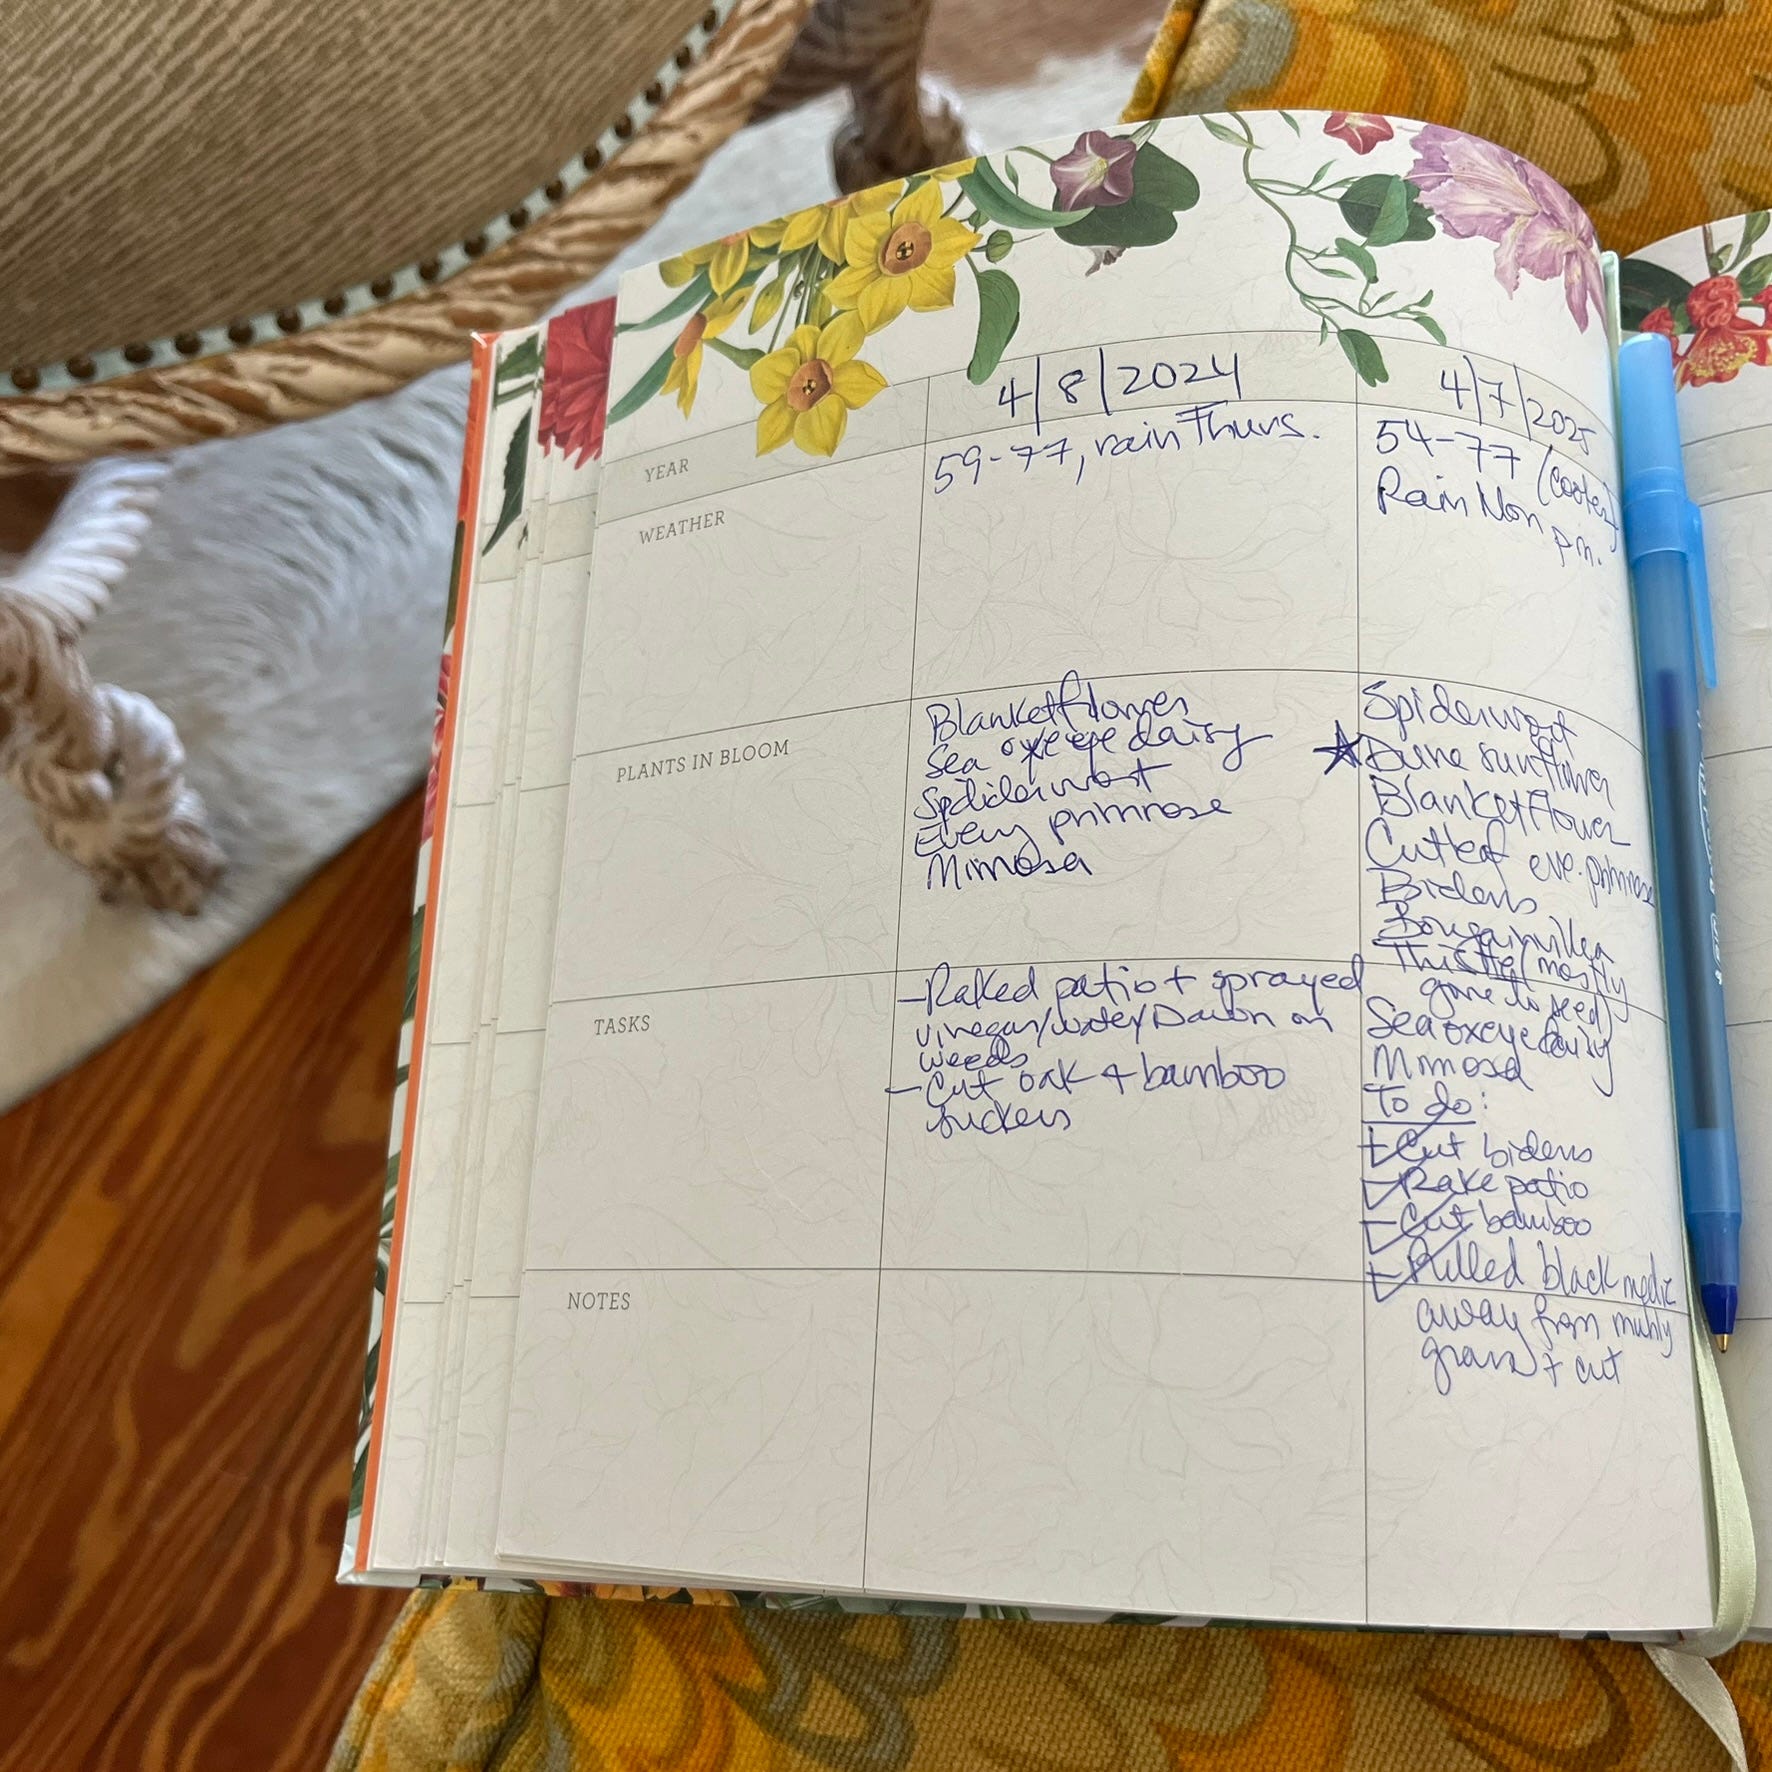 YEAR
4/8/2024
4/7/2025
WEATHER
59-77, rain Thurs.
54-77 (cooler)
Rain Mon
pm.
PLANTS IN BLOOM
Blanketflower
Sea oxeye daisy
Spiderwort
Eveng primrose
Mimosa
Spiderwort
★Dune sunflower
Blanketflower
Cutleaf eve. primrose
Bidens
Bougainvillea
Thistle (mostly
gone to seed)
Sea oxeye daisy
Mimosa
TASKS
-Raked patio + sprayed
vinegar/water/Dawn on
weeds
-Cut oak + bamboo
suckers
To do:
-Cut bidens
-Rake patio
-Cut bamboo
-Pulled black medic
away from muhly
grass + cut
NOTES